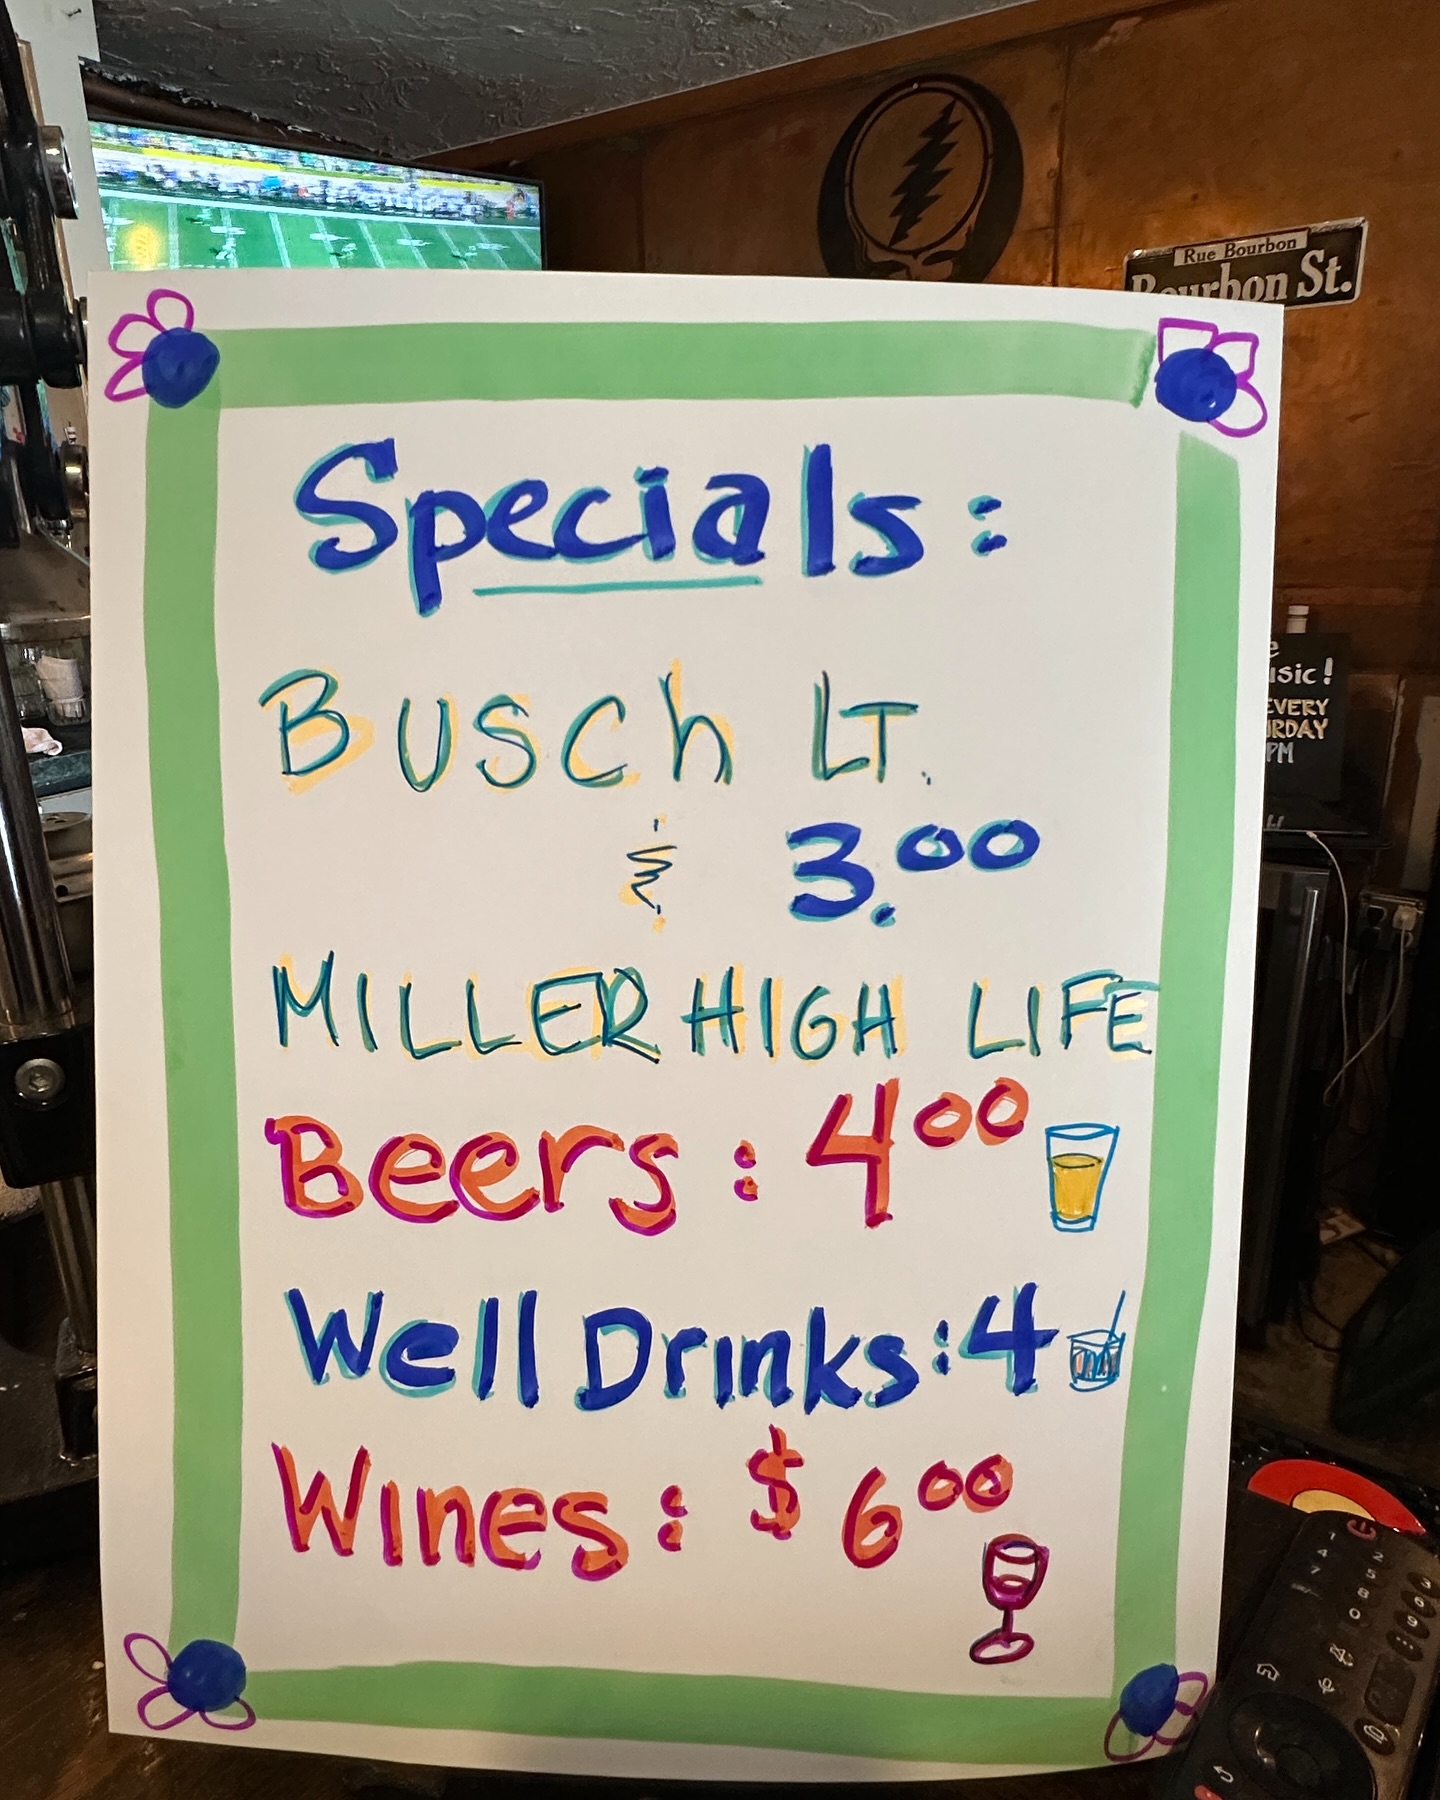 Rue Bourbon
Bourbon St.
Specials:
BUSCh LT.
& 3.00
MILLER HIGH LIFE
Beers: 4 00
Well Drinks: 4
Wines: $ 6 00